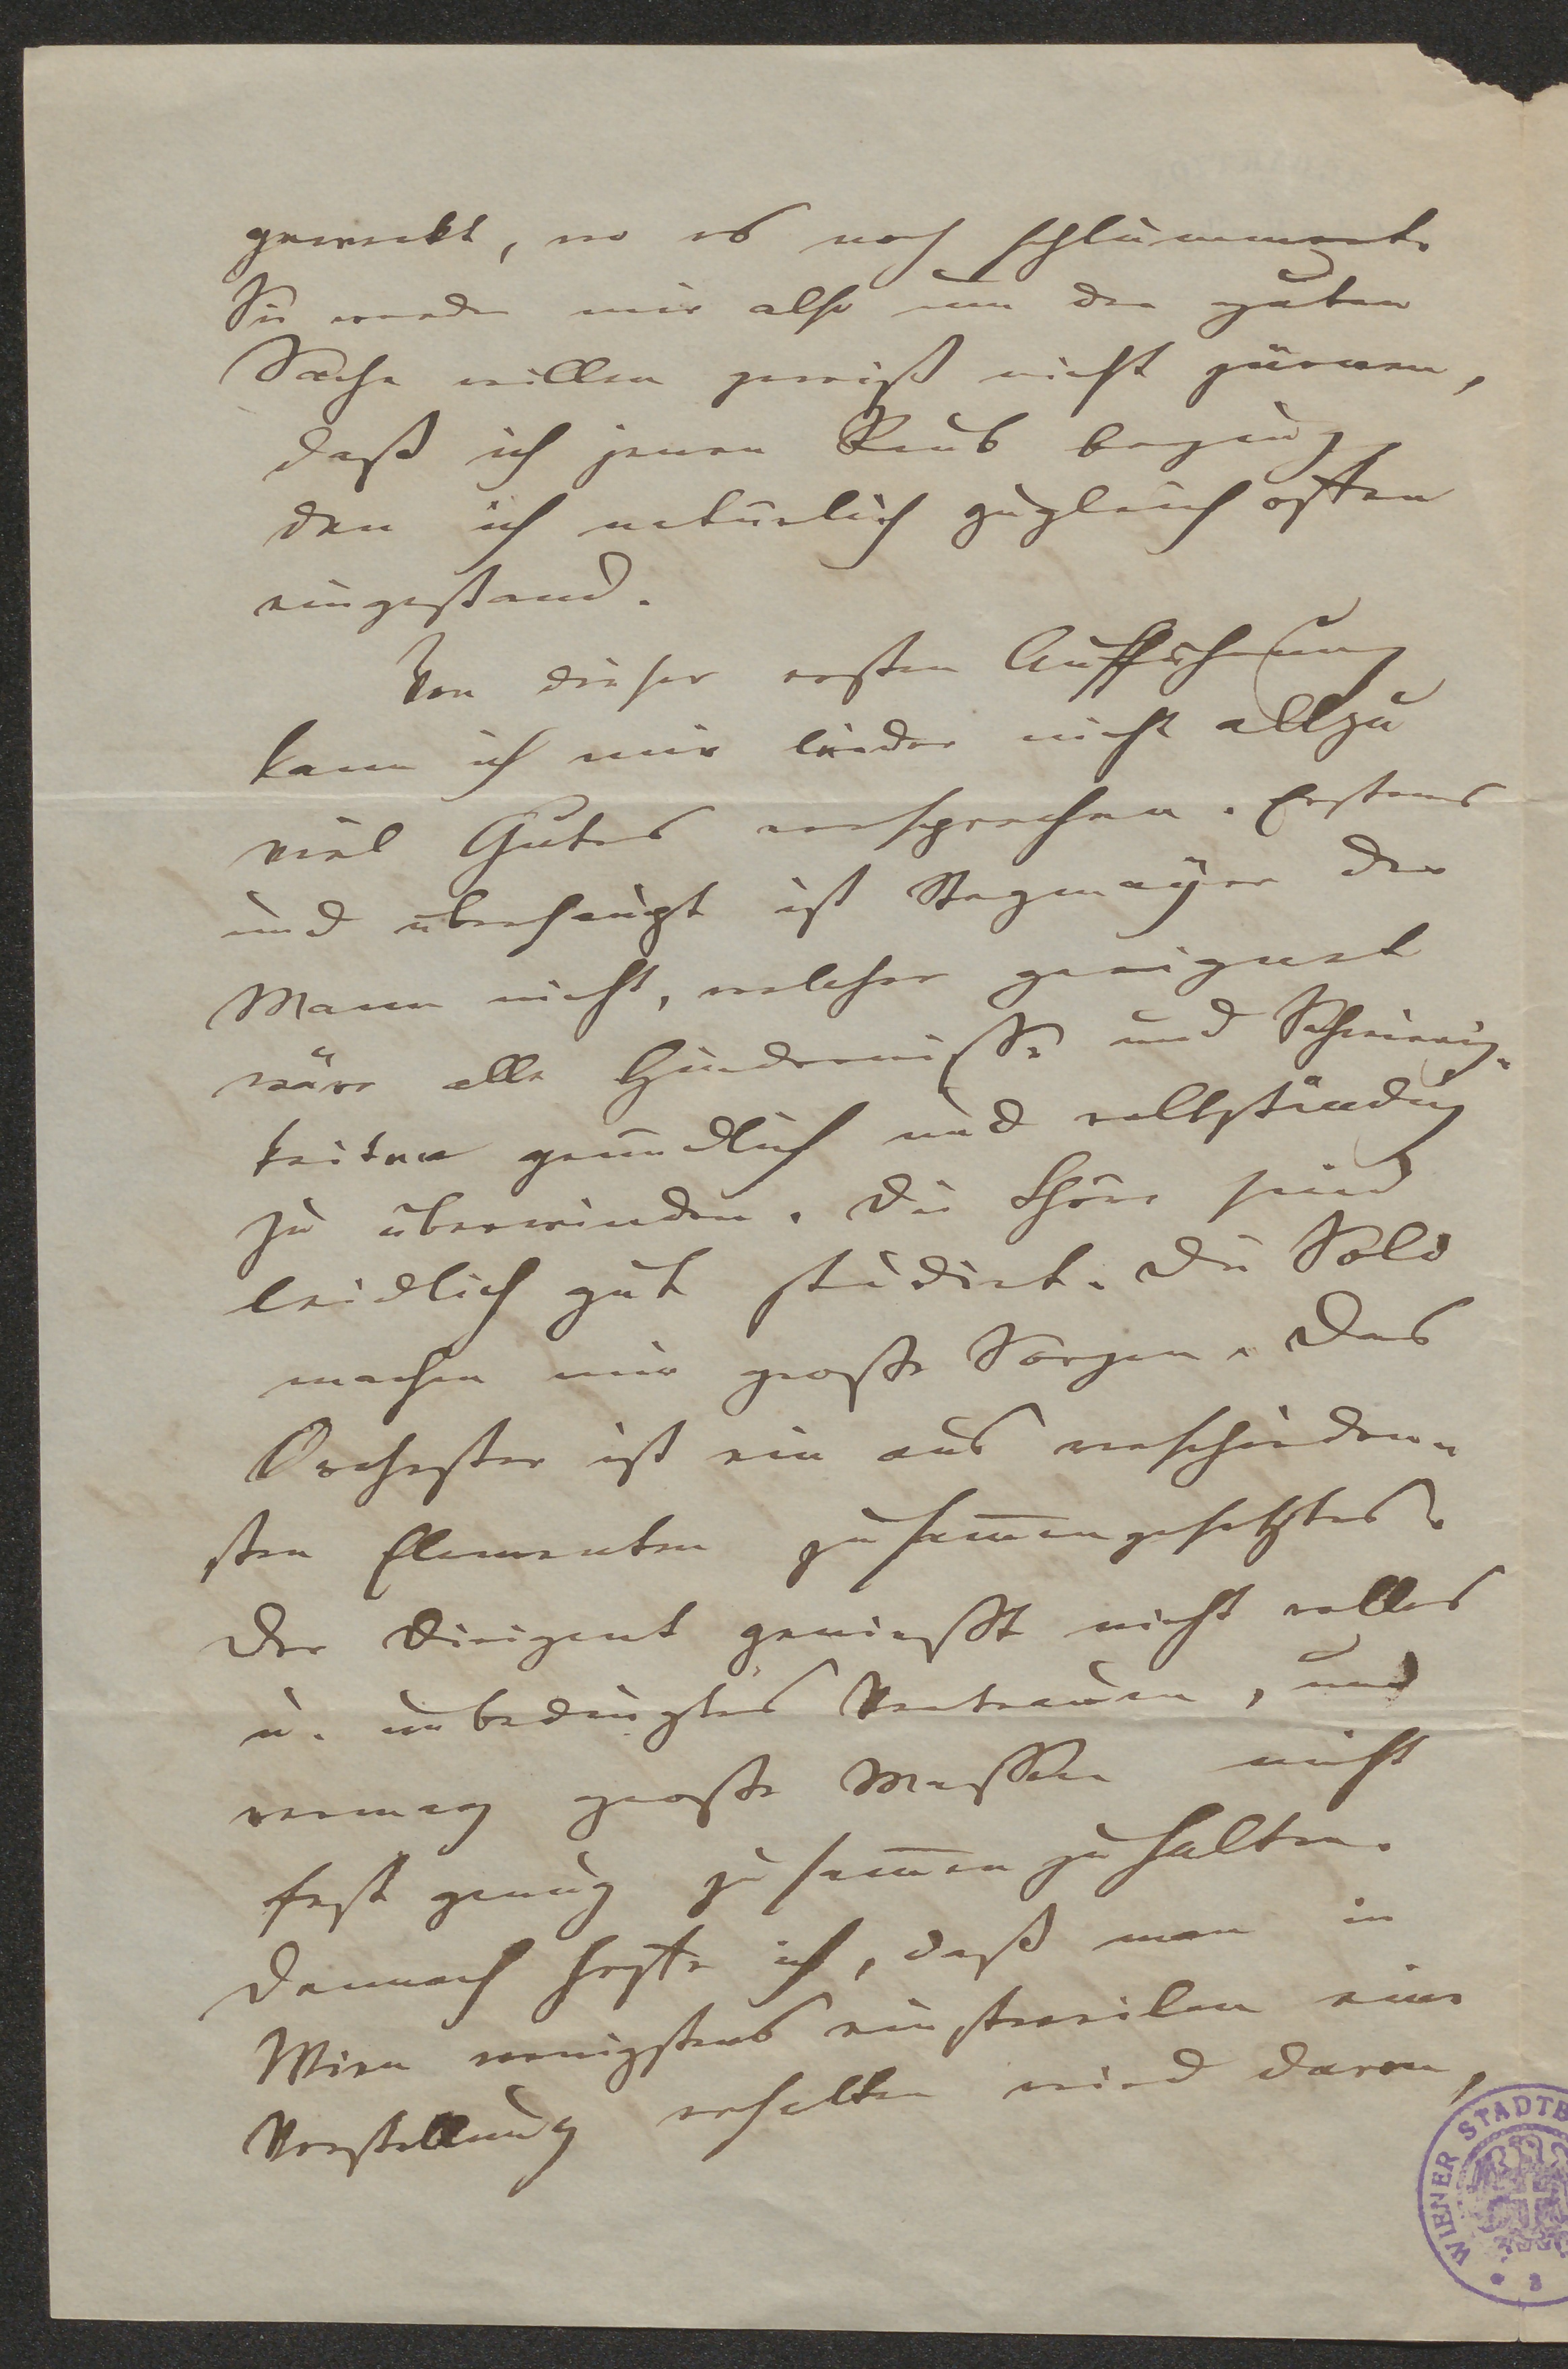 geweckt, wo es noch schlummert.
Sie werden mir also um der guten
Sache willen gewiß nicht zürnen,
daß ich jenen Raub beging
den ich natürlich zugleich offen
eingestand.
Von dieser ersten Aufführung
kann ich mir leider nicht allzu
viel Gutes versprechen. Erstens
und überhaupt ist Stegmayer der
Mann nicht, welcher geeignet
wäre alle Hindernisse und Schwierig-
keiten gründlich und vollständig
zu überwinden. Die Chöre sind
leidlich gut studirt. Die Soli
machen mir große Sorgen. Das
Orchester ist ein aus verschieden-
sten Elementen zusam̅engesetztes.
Der Dirigent genießt nicht volles
u. unbedingtes Vertrauen, und
vermag große Massen nicht
fest genug zusam̅en zu halten.
Dennoch hoffe ich, daß man in
Wien wenigstens einstweilen eine
Vorstellung erhalten wird davon,
WIENER STADTB